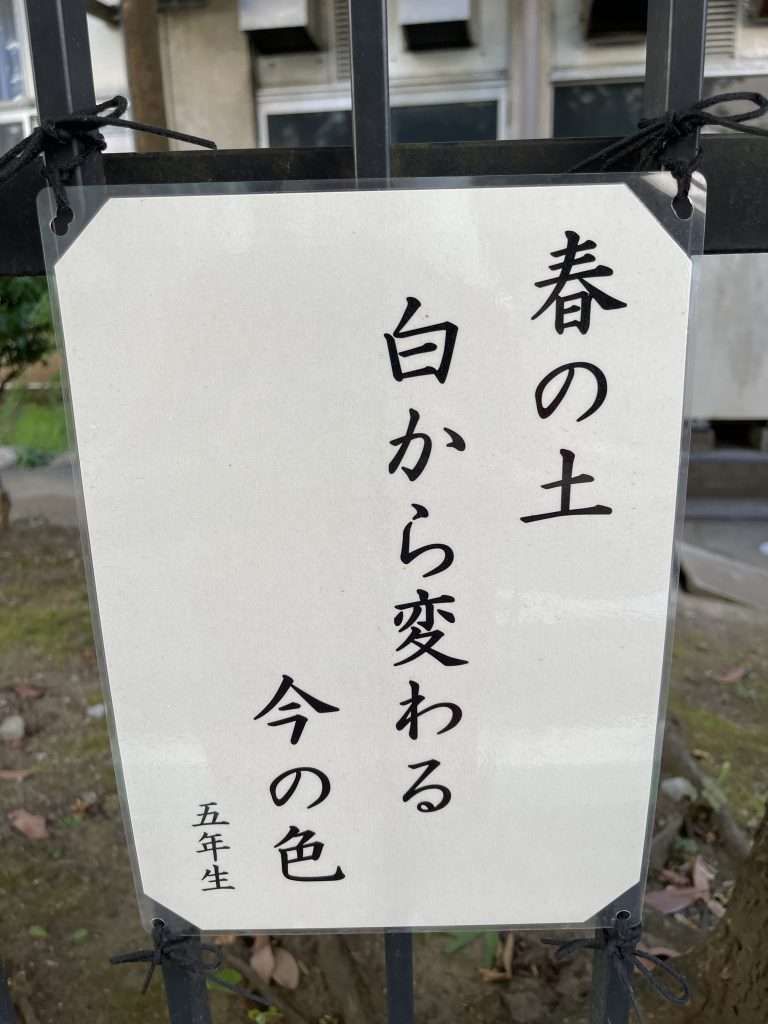 春の土
白から変わる
今の色
五年生